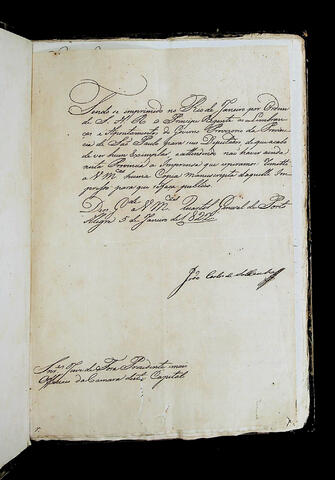 Tendo-se imprimido no Rio de Janeiro por Ordem
de S. A. R. o Principe Regente as Lembran-
ças e Apontamentos do Governo Provizorio da Provin-
cia de Saõ Paulo para seus Deputados de que acabo
de ver hum Exemplar, e attendendo naõ haver ainda
nesta Provincia a Imprensa que
a V. M.ces huma Copia manuscripta daquelle Im-
presso para que se faça publico.
Deos G.de a V. M.ces Quartel General de Porto
Alegre 5 de Janeiro de 1822
João Carlos de Saldanha
Snr.es Juiz de Fora Prezidente, mais
Officiaes da Camara desta Capital